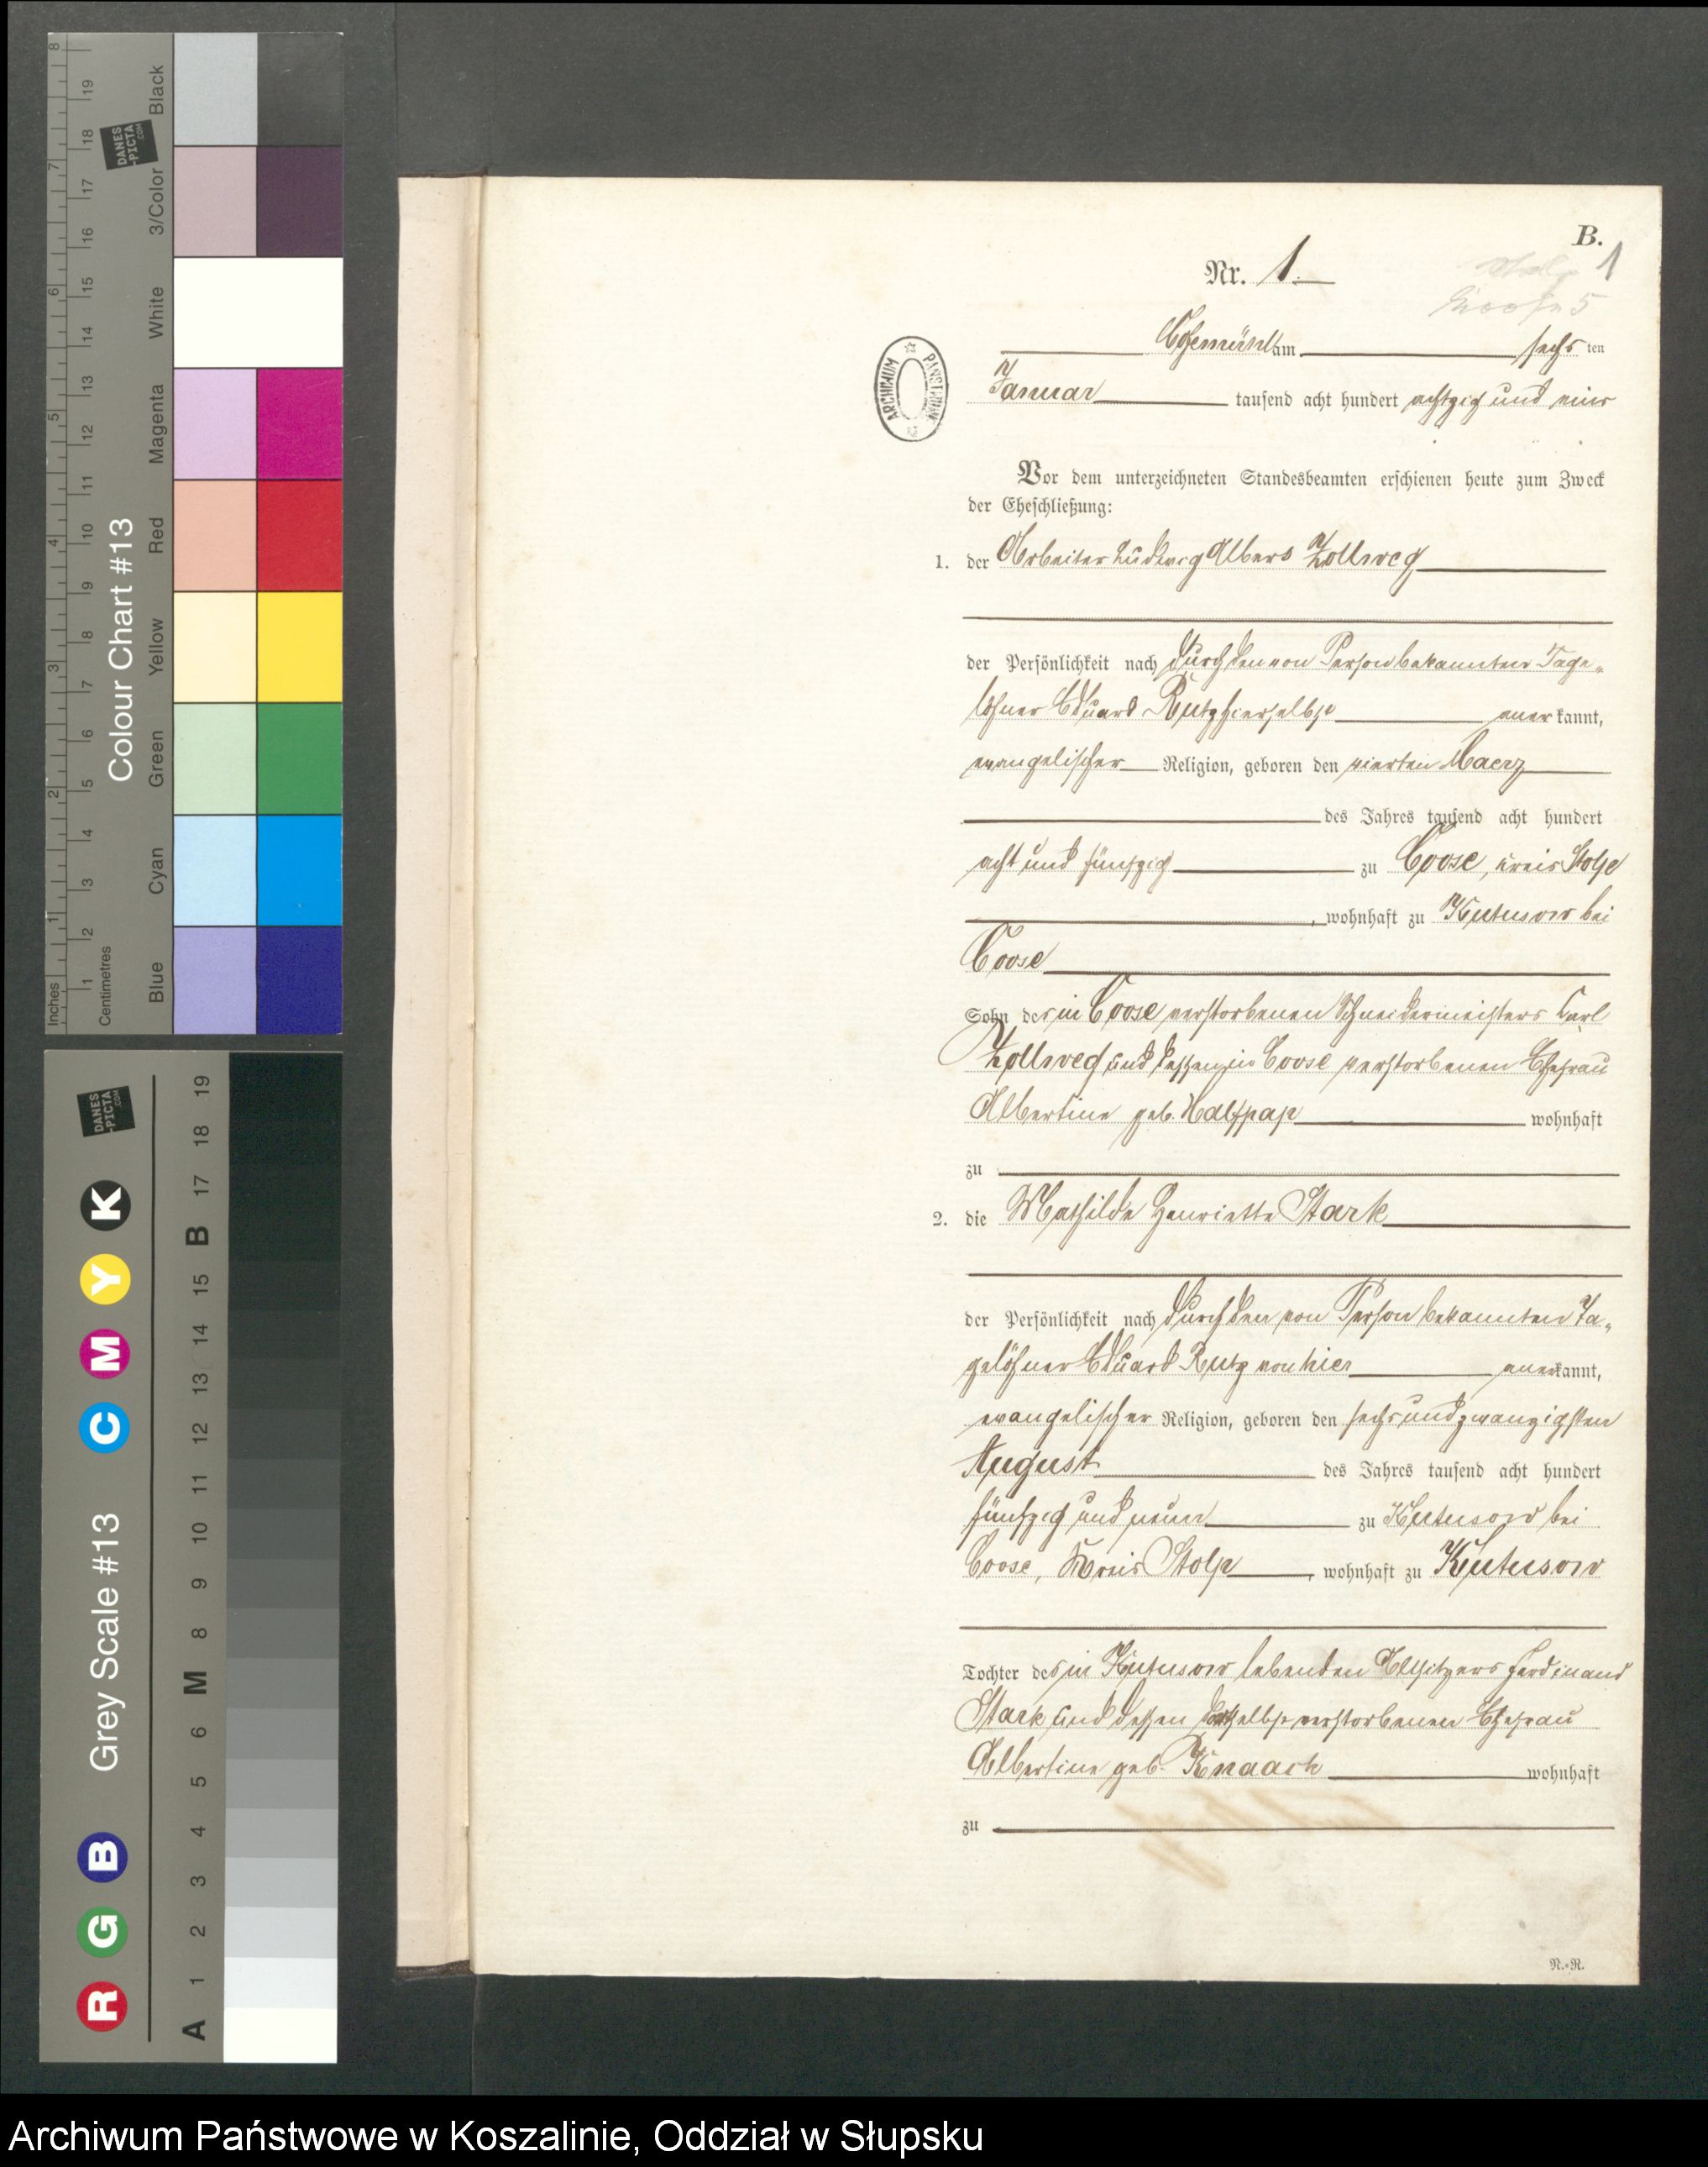 B.
Nr. 1.
1
am sechs ten
Januar tausend acht hundert achtzig und eins
ARCHIWUM PAŃSTWOWE
Vor dem unterzeichneten Standesbeamten erschienen heute zum Zweck
der Eheschließung:
1. der Arbeiter Ludwig Albert Zollweg
der Persönlichkeit nach durch den von Person bekannten Tage-
löhner Eduard Rutz hierselbst anerkannt,
evangelischer Religion, geboren den vierten Maerz
des Jahres tausend acht hundert
acht und fünfzig zu Coose, Kreis Stolp
, wohnhaft zu Kutusow bei
Coose
Sohn des in Coose verstorbenen Schneidermeisters Carl
Zollweg und dessen in Coose verstorbenen Ehefrau
Albertine geb. Halfpap wohnhaft
zu
2. die Mathilde Henriette Stark
der Persönlichkeit nach durch den von Person bekannten Ta-
gelöhner Eduard Rutz von hier anerkannt,
evangelischer Religion, geboren den sechsundzwanzigsten
August des Jahres tausend acht hundert
fünfzig und neun zu Kutusow bei
Coose, Kreis Stolp, wohnhaft zu Kutusow
Tochter des in Kutusow lebenden Altsitzers Ferdinand
Stark und dessen daselbst verstorbenen Ehefrau
Albertine geb. Knaack wohnhaft
zu
N.-R.
Colour Chart #13
Blue Cyan Green Yellow Red Magenta White 3/Color Black
Inches
Centimetres
1 2 3 4 5 6 7 8 9 10 11 12 13 14 15 16 17 18 19
1 2 3 4 5 6 7 8
DANES
-PICTA
.COM
R G B Grey Scale #13 C M Y K
A 1 2 3 4 5 6 M 8 9 10 11 12 13 14 15 B 17 18 19
DANES
-PICTA
.COM
Archiwum Państwowe w Koszalinie, Oddział w Słupsku